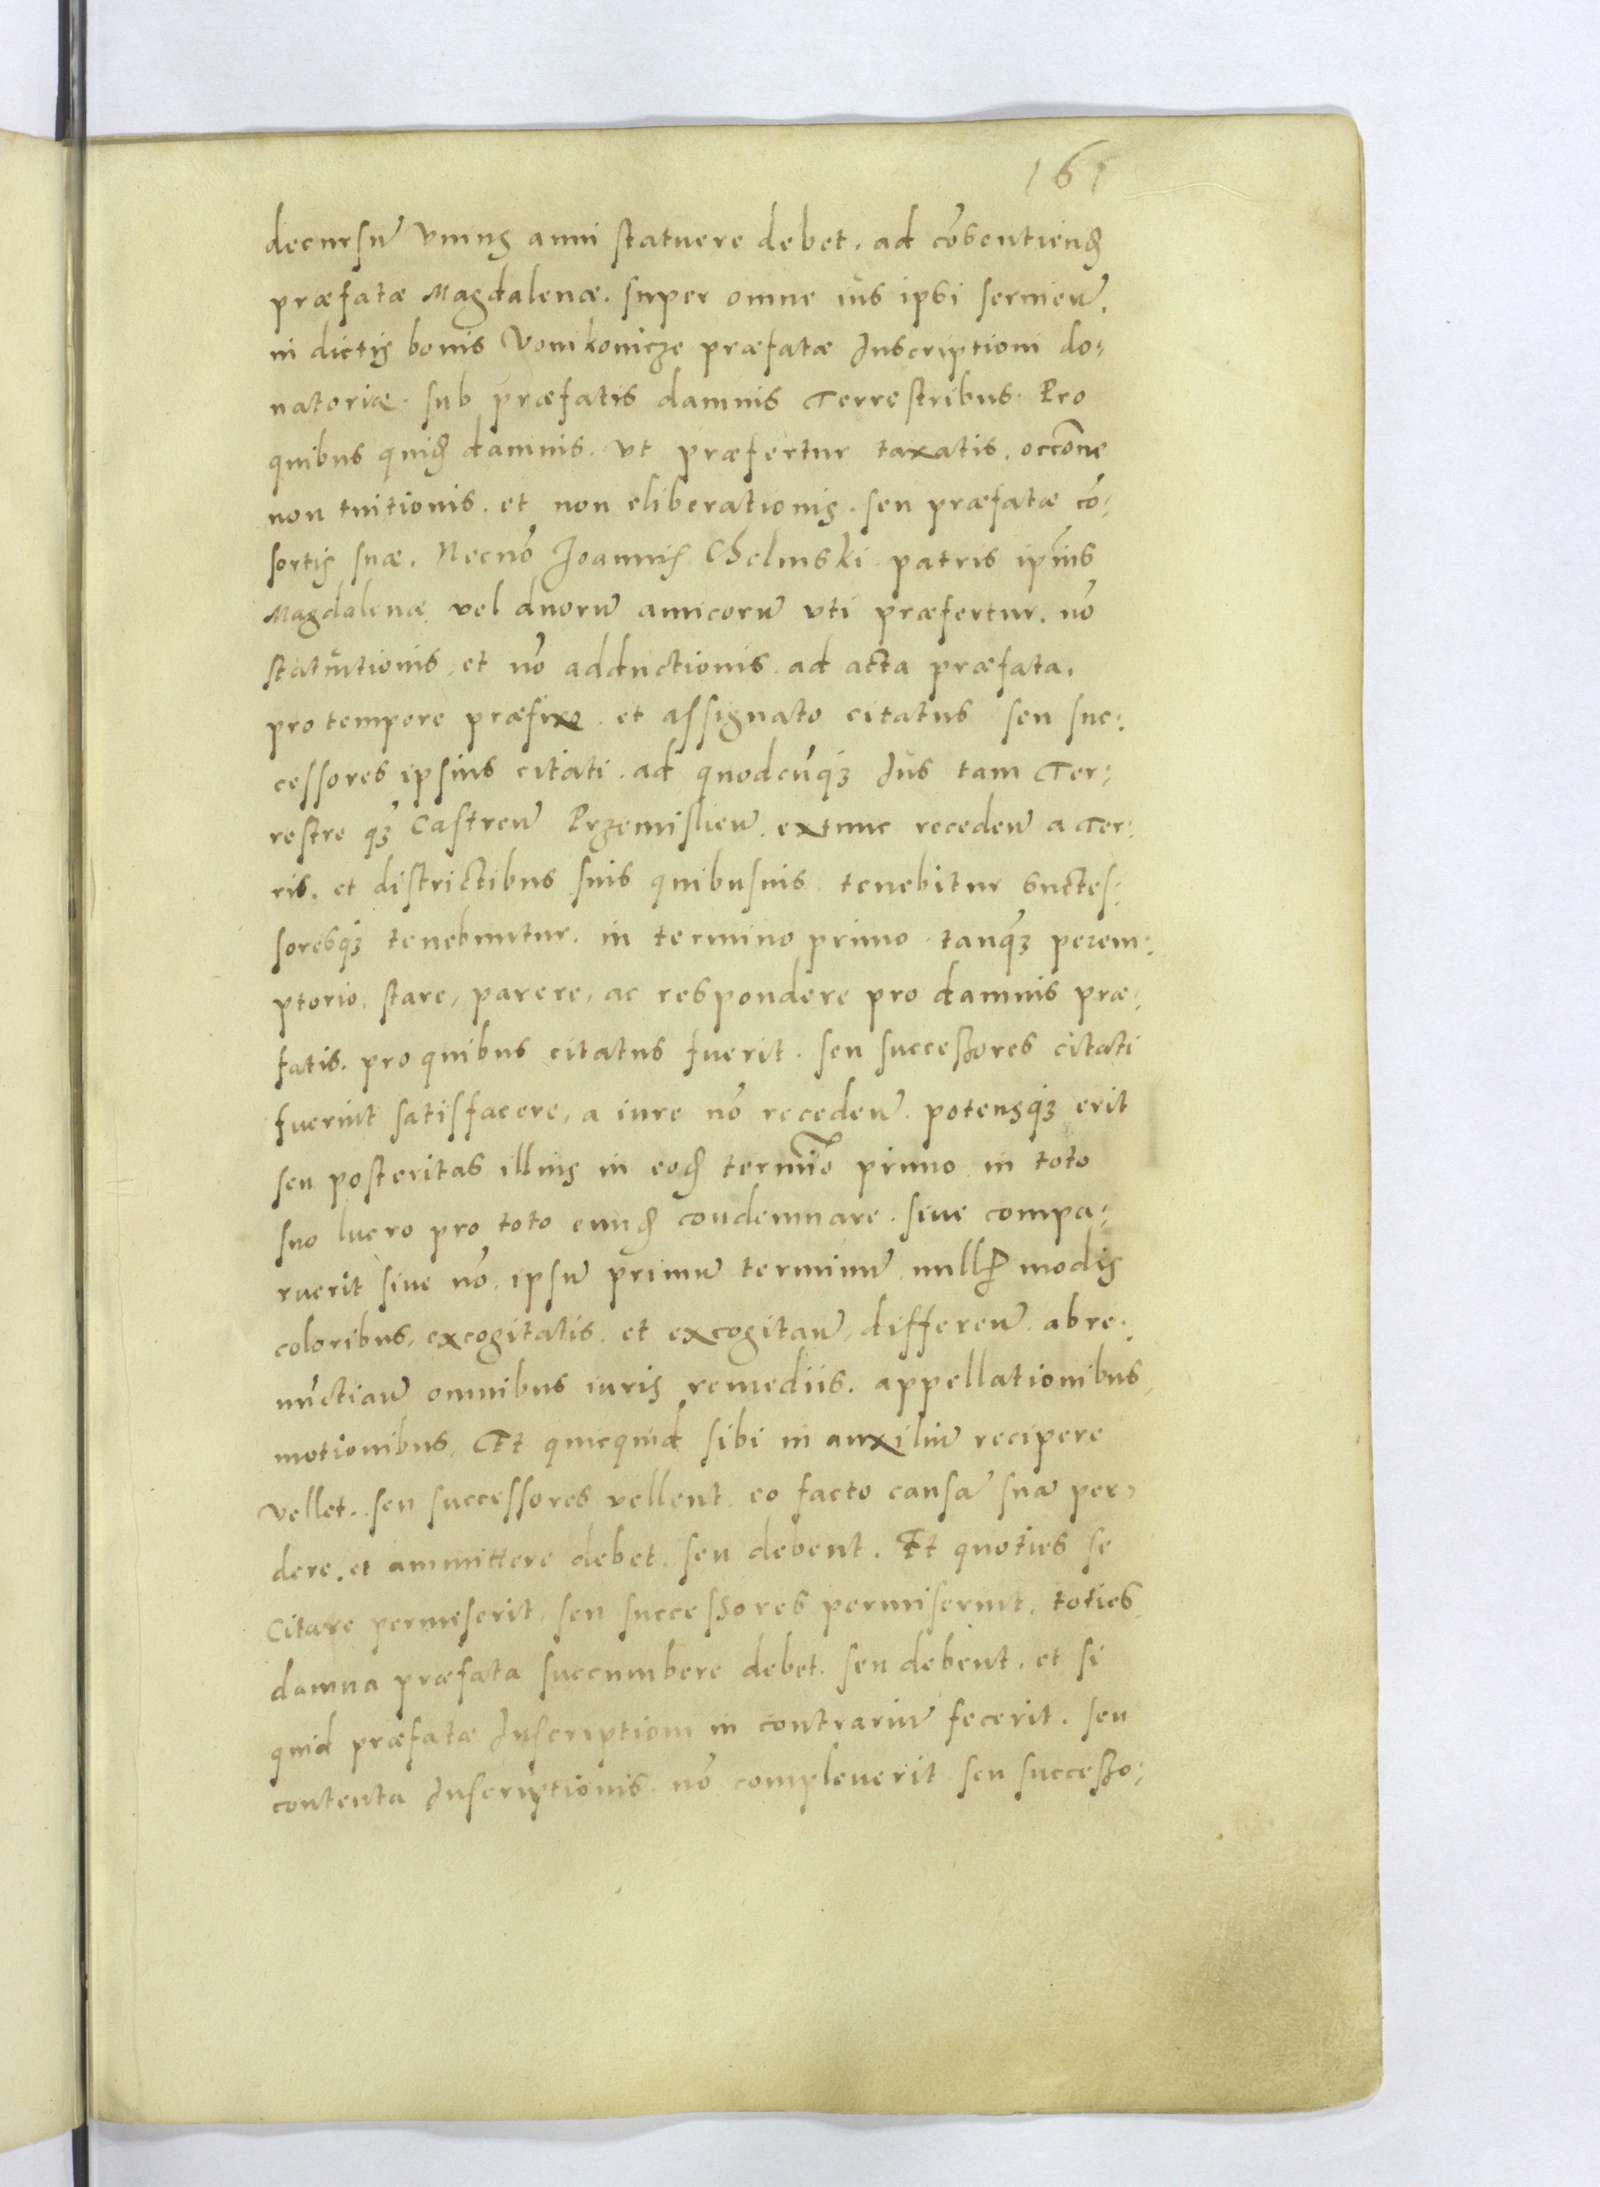 161
decursũ vnius anni statuere debet. ad cõsentiend̃
præfatæ Magdalenæ. super omne iũs ipsi seruieñ.
in dictis bonis Vonikonicze præfatæ Inscriptioni do:
natoriæ. sub præfatis damnis Terrestribus. Pro
quibus quid̃ damnis. vt præfertur taxatis. occõne
non tuitionis. et non eliberationis. seu præfatæ cõ:
sortis suæ. Necnõ Joannis Chelmski patris ip̃ius
Magdalenæ vel duorũ amicorũ vti præfertur. nõ
statuitionis. et nõ adductionis. ad acta præfata.
pro tempore præfixo. et assignato citatus seu suc:
cessores ipsius citati. ad quodcũq₃ Jus tam Ter:
restre q̃₃ Castreñ Przemislieñ. extunc recedeñ a Ter:
ris. et districtibus suis quibusuis. tenebitur succes:
soresq₃ tenebuntur. in termino primo. tanq̃₃ perem:
ptorio. stare, parere, ac respondere pro damnis præ:
fatis. pro quibus citatus fuerit. seu successores citati
fuerint satisfacere, a iure nõ recedeñ. potensq₃ erit
seu posteritas illius in eod̃ termĩo primo in toto
suo lucro pro toto eund̃ condemnare. siue compa:
ruerit siue nõ. ipsũ primũ terminũ. null̃ modis
coloribus, excogitatis. et excogitañ, differeñ. abre:
nũctiañ omnibus iuris remediis. appellationibus,
motionibus, Et quicquid sibi in auxiliũ recipere
vellet. seu successores vellent. eo facto causã suã per:
dere. et ammittere debet. seu debent. Et quoties se
Citare permeserit. seu successores permiserint, toties
damna præfata succumbere debet. seu debent. et si
quid præfatæ Inscriptioni in contrariũ fecerit. seu
contenta Inscriptionis. nõ compleuerit seu successo: